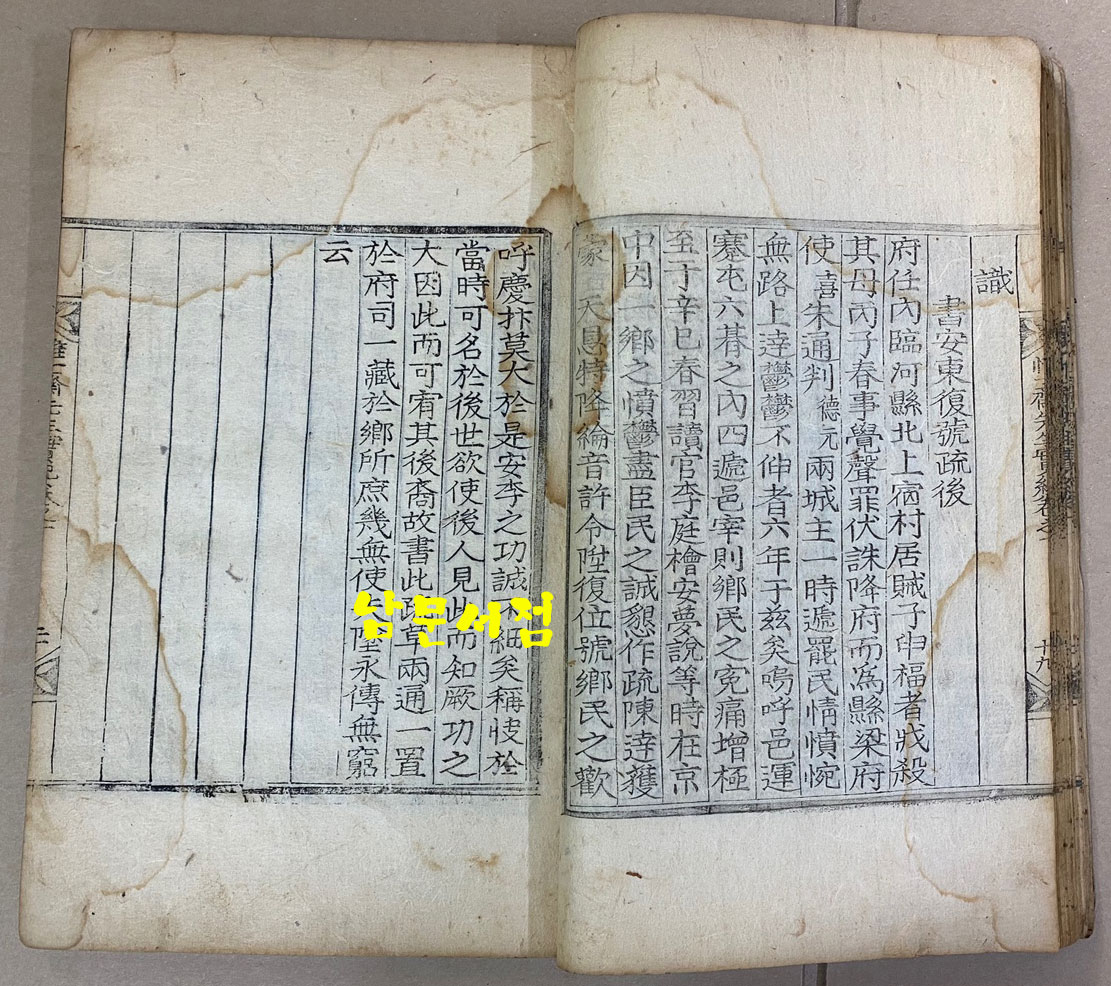 識
書安東復號疏後
府任內臨河縣北上宿村居賊子申福者戕殺
其母丙子春事覺聲罪伏誅降府而爲縣梁府
使 喜 朱通判 德元 兩城主一時遞罷民情憤惋
無路上達鬱鬱不伸者六年于玆矣嗚呼邑運
蹇屯六朞之內四遞邑宰則鄕民之寃痛增極
至于辛巳春習讀官李庭檜安夢說等時在京
中因一鄕之憤鬱盡臣民之誠懇作疏陳達獲
蒙 天恩特降綸音許令陞復位號鄕民之歡
呼慶抃莫大於是安李之功誠不細矣稱快於
當時可名於後世欲使後人見此而知厥功之
大因此而可宥其後裔故書此疏草兩通一置
於府司一藏於鄕所庶幾無使失墜永傳無窮
云
남문서점